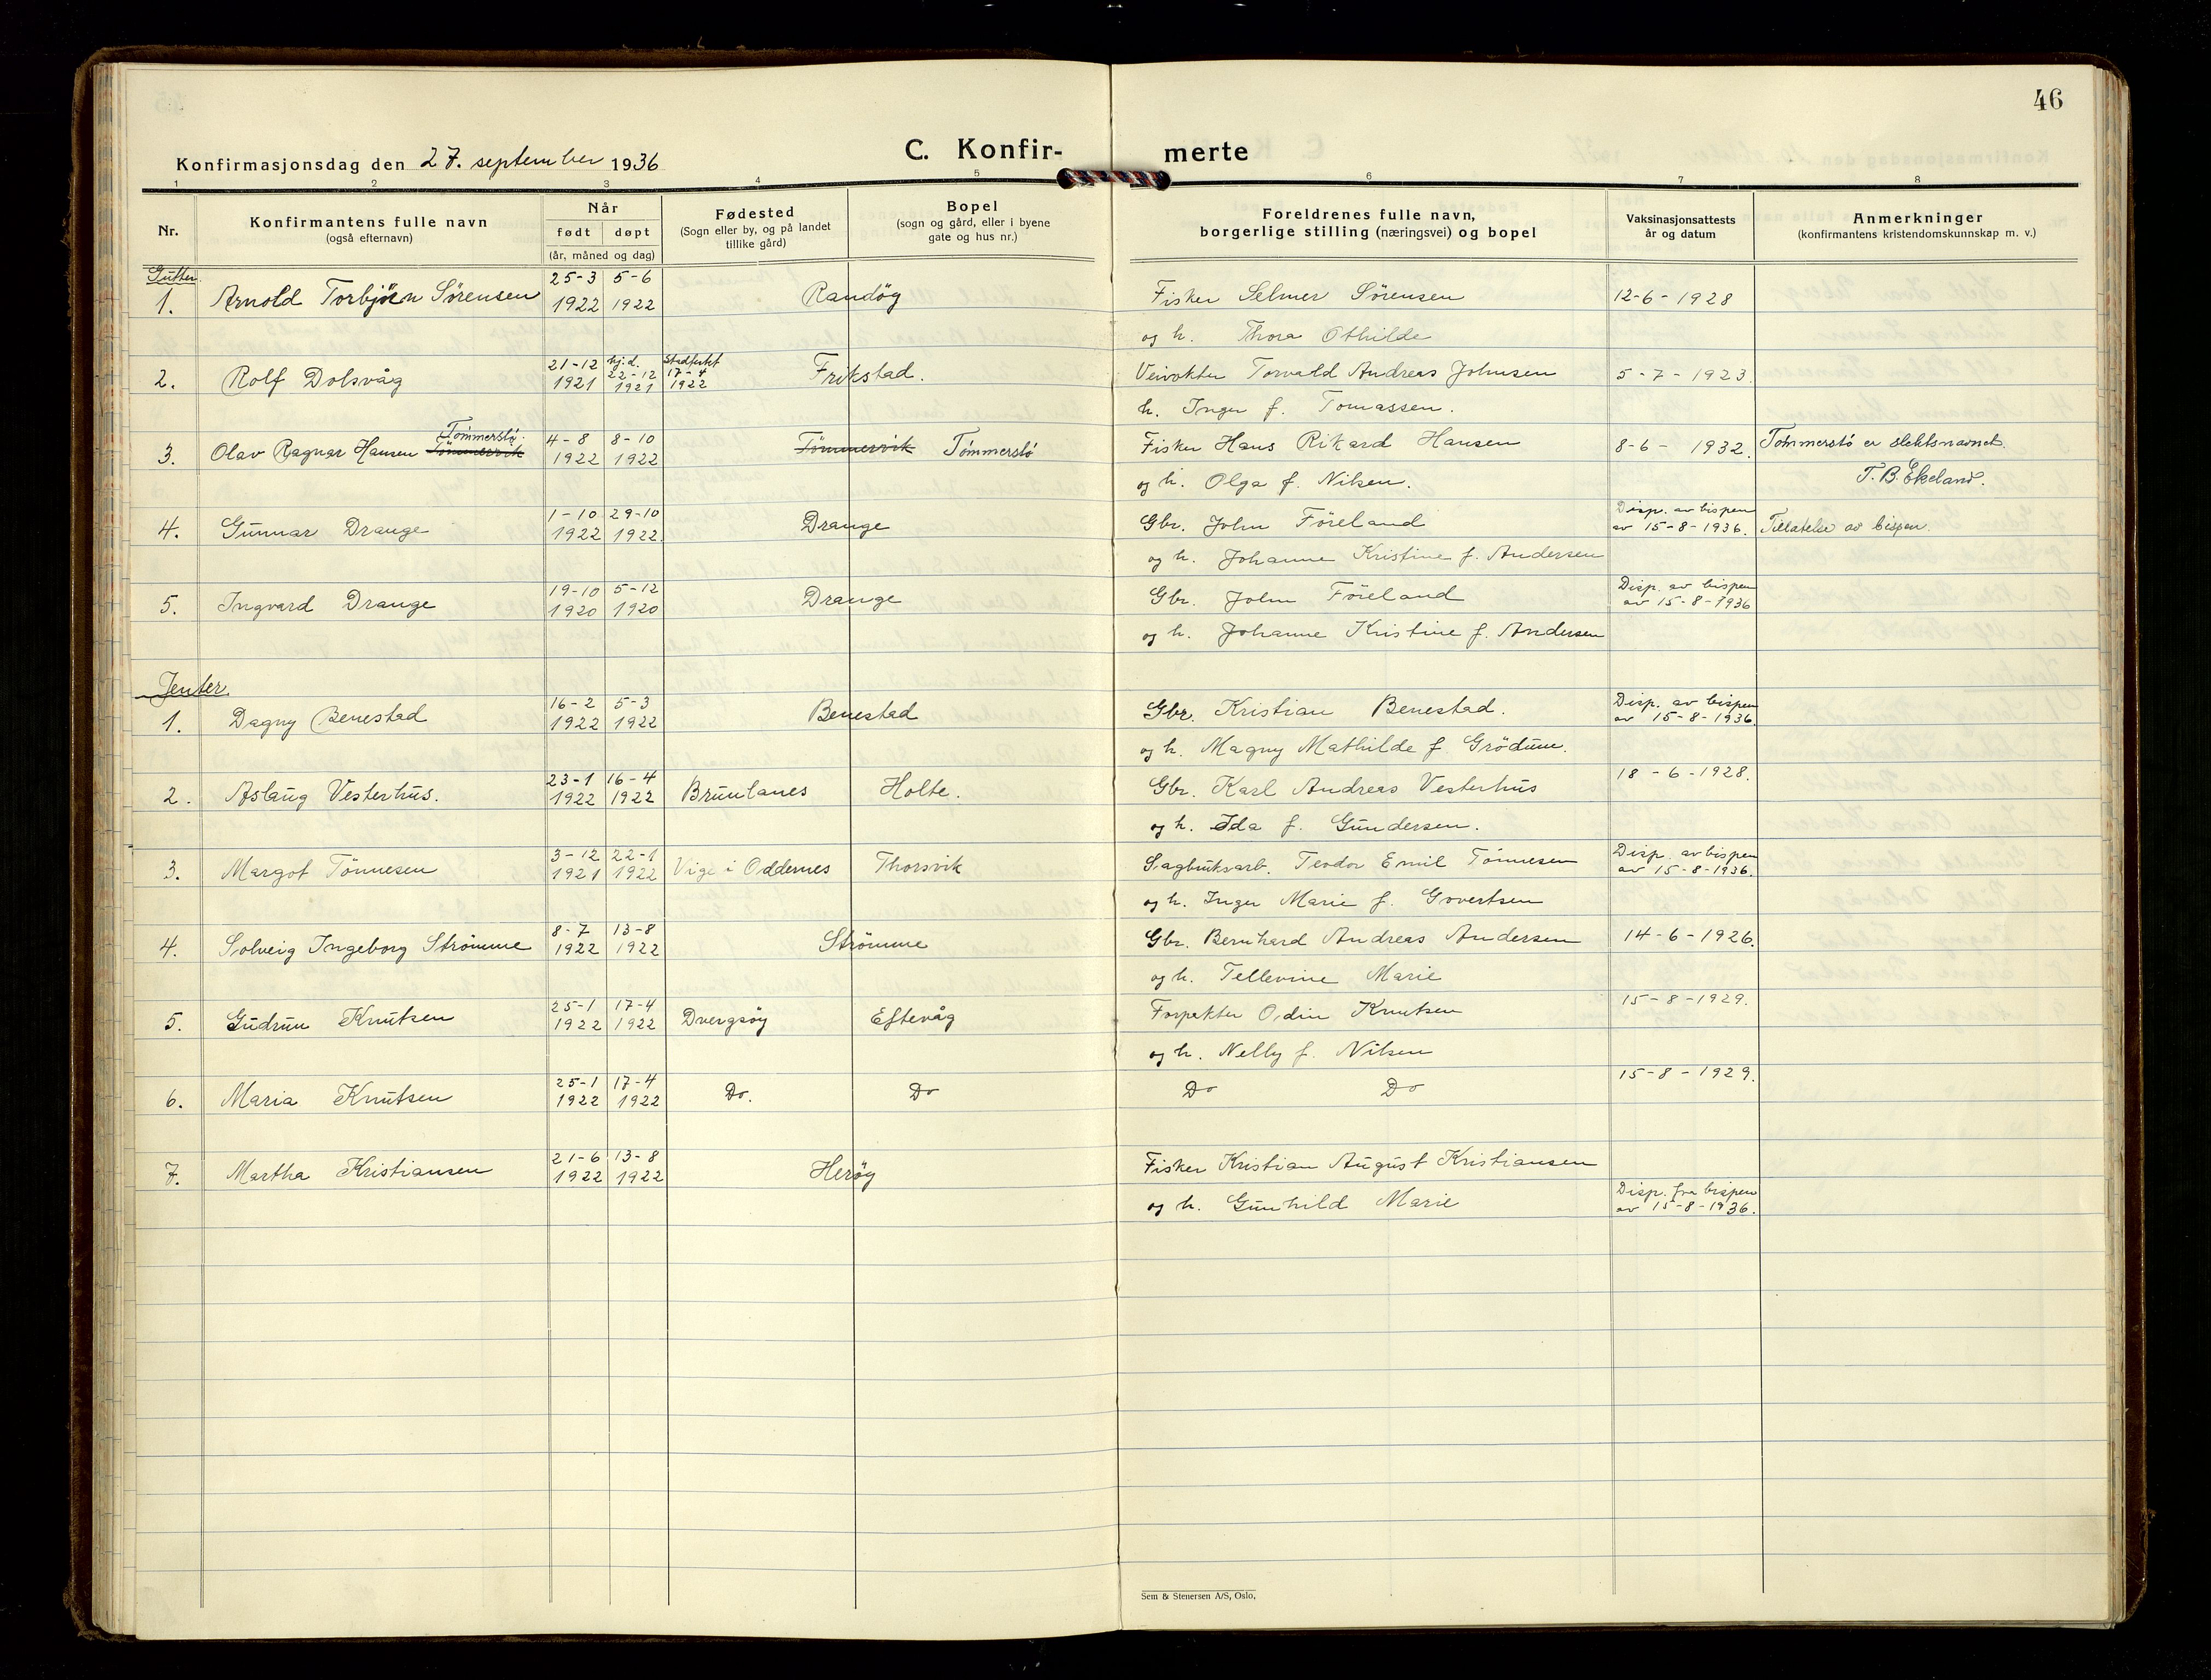 46
C. Konfir- merte
Konfirmasjonsdag den 27. september 1936
1 2 3 4 5 6 7 8
Nr.
Konfirmantens fulle navn
(også efternavn)
Når
født døpt
(år, måned og dag)
Fødested
(Sogn eller by, og på landet
tillike gård)
Bopel
(sogn og gård, eller i byene
gate og hus nr.)
Foreldrenes fulle navn,
borgerlige stilling (næringsvei) og bopel
Vaksinasjonsattests
år og datum
Anmerkninger
(konfirmantens kristendomskunnskap m. v.)
Gutter.
25-3 5-6
1. Arnold Torbjörn Sörensen 1922 1922 Randöy Fisker Selmer Sörensen 12-6-1928
og h. Thora Othilde
21-12 hj.d. 22-12 Stadfestet 17-4
2. Rolf Dolsvåg 1921 1921 1922 Frikstad. Veivokter Torvald Andreas Johnsen 5-7-1923.
h. Inger f. Tomassen.
Tömmerstö. 4-8 8-10
3. Olav Ragnar Hansen Tömmervik 1922 1922 Tömmervik Tömmerstö Fisker Hans Rikard Hansen 8-6-1932. Tömmerstö er slektsnavnet.
og h. Olga f. Nilsen. T.B. Ekeland.
1-10 29-10 Disp. av bispen
4. Gunnar Drange 1922 1922. Drange Gbr. John Föreland av 15-8-1936. Tillatelse av bispen.
og h. Johanne Kristine f. Andersen
19-10 5-12 Disp. av bispen
5. Ingvard Drange 1920 1920 Drange Gbr. John Föreland av 15-8-1936
og h. Johanne Kristine f. Andersen
Jenter.
16-2 5-3 Disp. av bispen
1. Dagny Benestad 1922 1922 Benestad Gbr. Kristian Benestad. av 15-8-1936.
og h. Magny Mathilde f. Grödum.
23-1 16-4 18-6-1928.
2. Aslaug Vesterhus. 1922 1922 Brunlanes Holte. Gbr. Karl Andreas Vesterhus
og h. Ida f. Gundersen.
3-12 22-1 Disp. av bispen
3. Margot Tönnesen 1921 1922 Vige i Oddernes Thorsvik Sagbruksarb. Teodor Emil Tönnesen av 15-8-1936.
og h. Inger Marie f. Govertsen
8-7 13-8
4. Solveig Ingeborg Strömme 1922 1922 Strömme Gbr. Bernhard Andreas Andersen 14-6-1926.
og h. Tellevine Marie
25-1 17-4 15-8-1929.
5. Gudrun Knutsen 1922 1922 Dvergsöy Eftevåg Forpakter Odin Knutsen
og h. Nelly f. Nilsen
25-1 17-4 15-8-1929.
6. Maria Knutsen 1922 1922 Do. Do Do Do
21-6 13-8
7. Martha Kristiansen 1922 1922 Heröy Fisker Kristian August Kristiansen
og h. Gunhild Marie Disp. fra bispen
av 15-8-1936.
Sem & Stenersen A/S, Oslo.